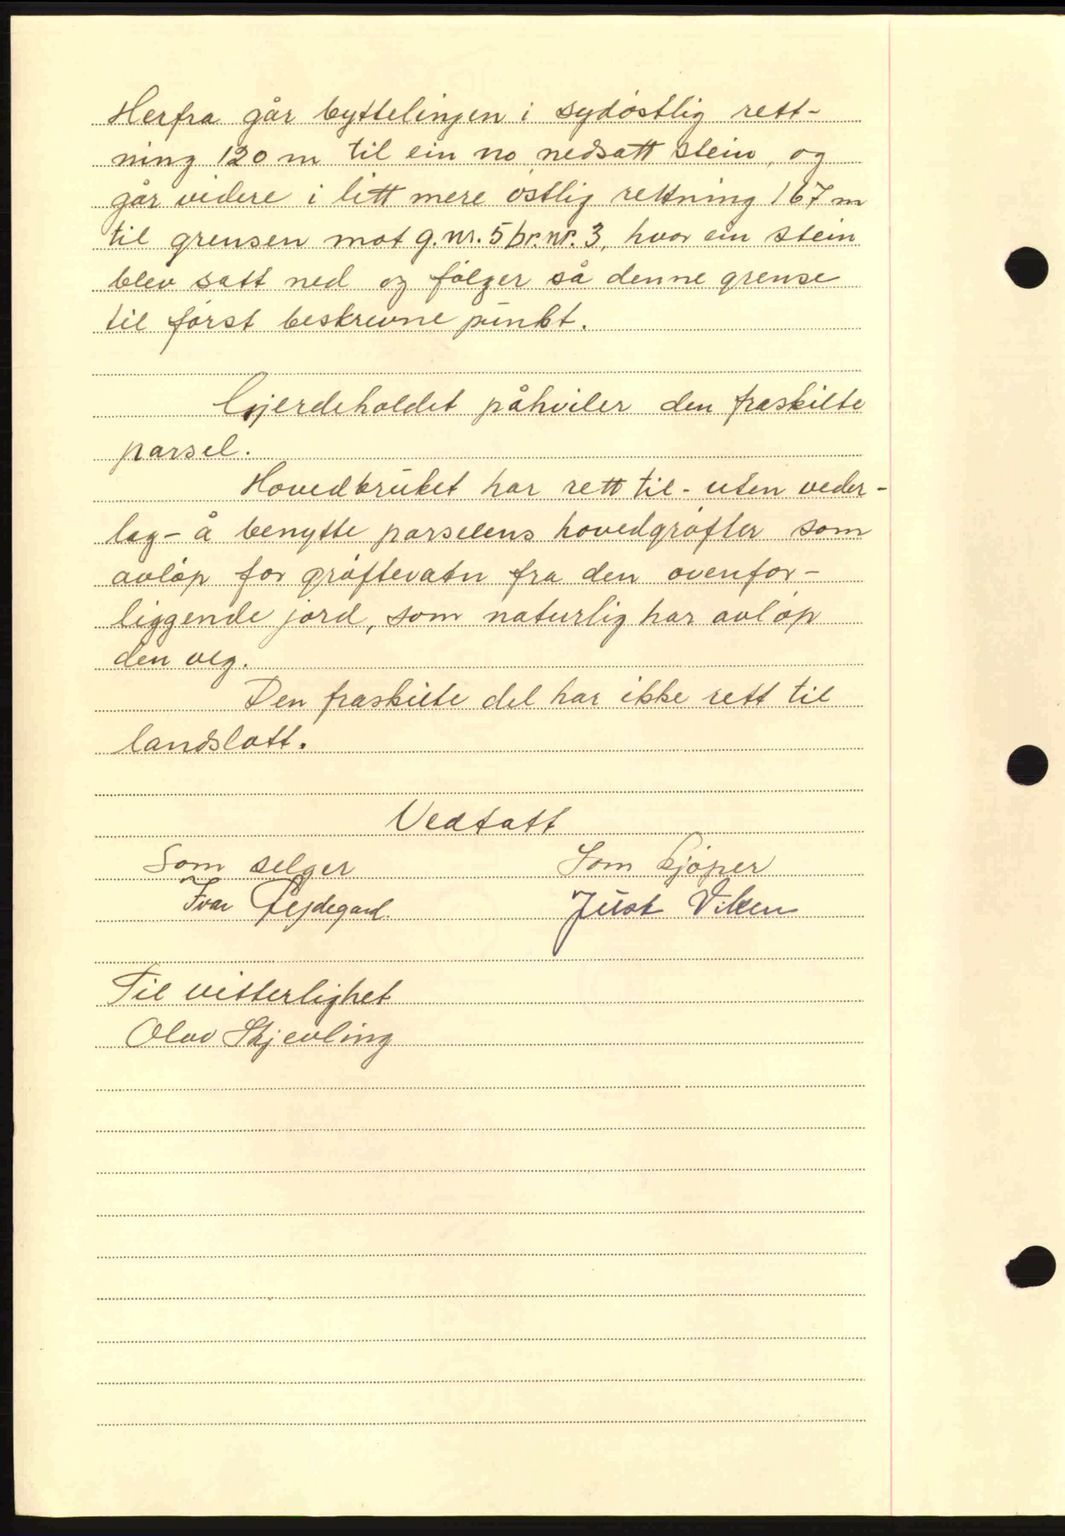 Herfra går byttelinjen i sydøstlig rett-
ning 120 m til ein no nedsatt stein, og
går videre i litt mere østlig rettning 167 m
til grensen mot g.nr. 5 br.nr. 3, hvor ein stein
blev satt ned og følger så denne grense
til først beskrevne punkt.
Gjerdeholdet påhviler den fraskilte
parsel.
Hovedbruket har rett til - uten veder-
lag - å benytte parselens hovedgrøfter som
avløp for grøftevatn fra den ovenfor-
liggende jord, som naturlig har avløp
den veg.
Den fraskilte del har ikke rett til
landslott.
Vedtatt
Som selger
Som kjøper
Ivar
Just Viken
Til vitterlighet
Olav Skjevling